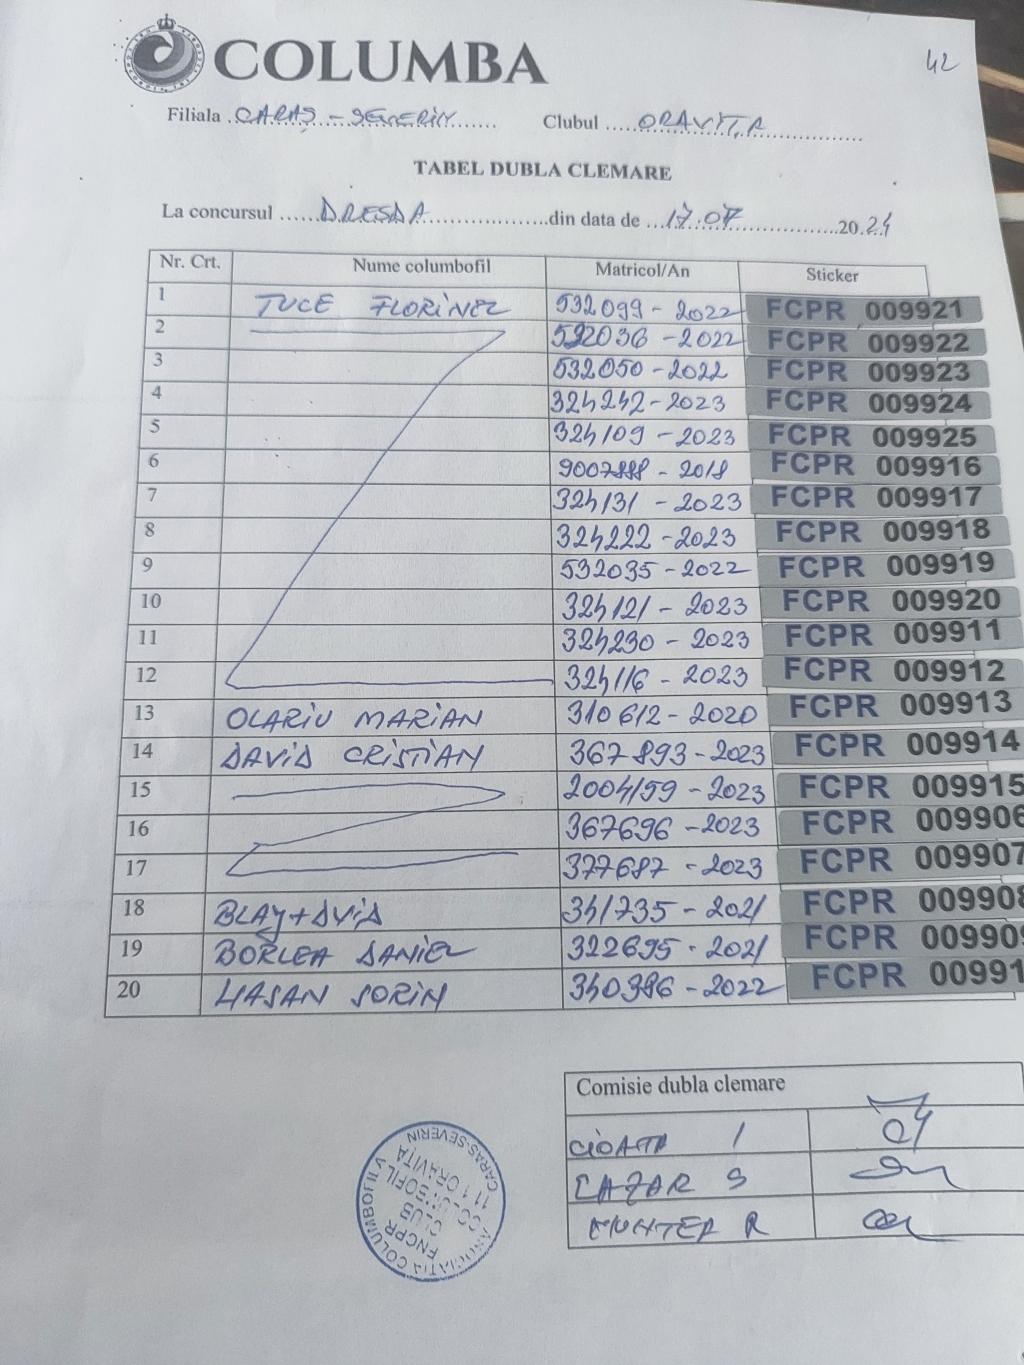 COLUMBA
42
Filiala CARAȘ - SEVERIN Clubul ORAVIȚA
TABEL DUBLA CLEMARE
La concursul DRESDA din data de 17.07 2024
Nr. Crt. Nume columbofil Matricol/An Sticker
1 TUCE FLORINEL 532099 - 2022 FCPR 009921
2 532036 - 2022 FCPR 009922
3 532050 - 2022 FCPR 009923
4 324242 - 2023 FCPR 009924
5 324109 - 2023 FCPR 009925
6 9007888 - 2018 FCPR 009916
7 324131 - 2023 FCPR 009917
8 324222 - 2023 FCPR 009918
9 532035 - 2022 FCPR 009919
10 324121 - 2023 FCPR 009920
11 324230 - 2023 FCPR 009911
12 324116 - 2023 FCPR 009912
13 OLARIU MARIAN 310612 - 2020 FCPR 009913
14 DAVID CRISTIAN 367893 - 2023 FCPR 009914
15 2004159 - 2023 FCPR 009915
16 367696 - 2023 FCPR 009906
17 377687 - 2023 FCPR 009907
18 341735 - 2021 FCPR 009908
19 BORLEA DANIEL 322695 - 2021 FCPR 00990
20 HASAN SORIN 340386 - 2022 FCPR 00991
Comisie dubla clemare
CIOATA I
LAZAR S
MUNTER R
ASOCIATIA COLUMBOFILA
CARAS-SEVERIN
FNCPR
CLUB
COLUMBOFIL
111 ORAVIȚA